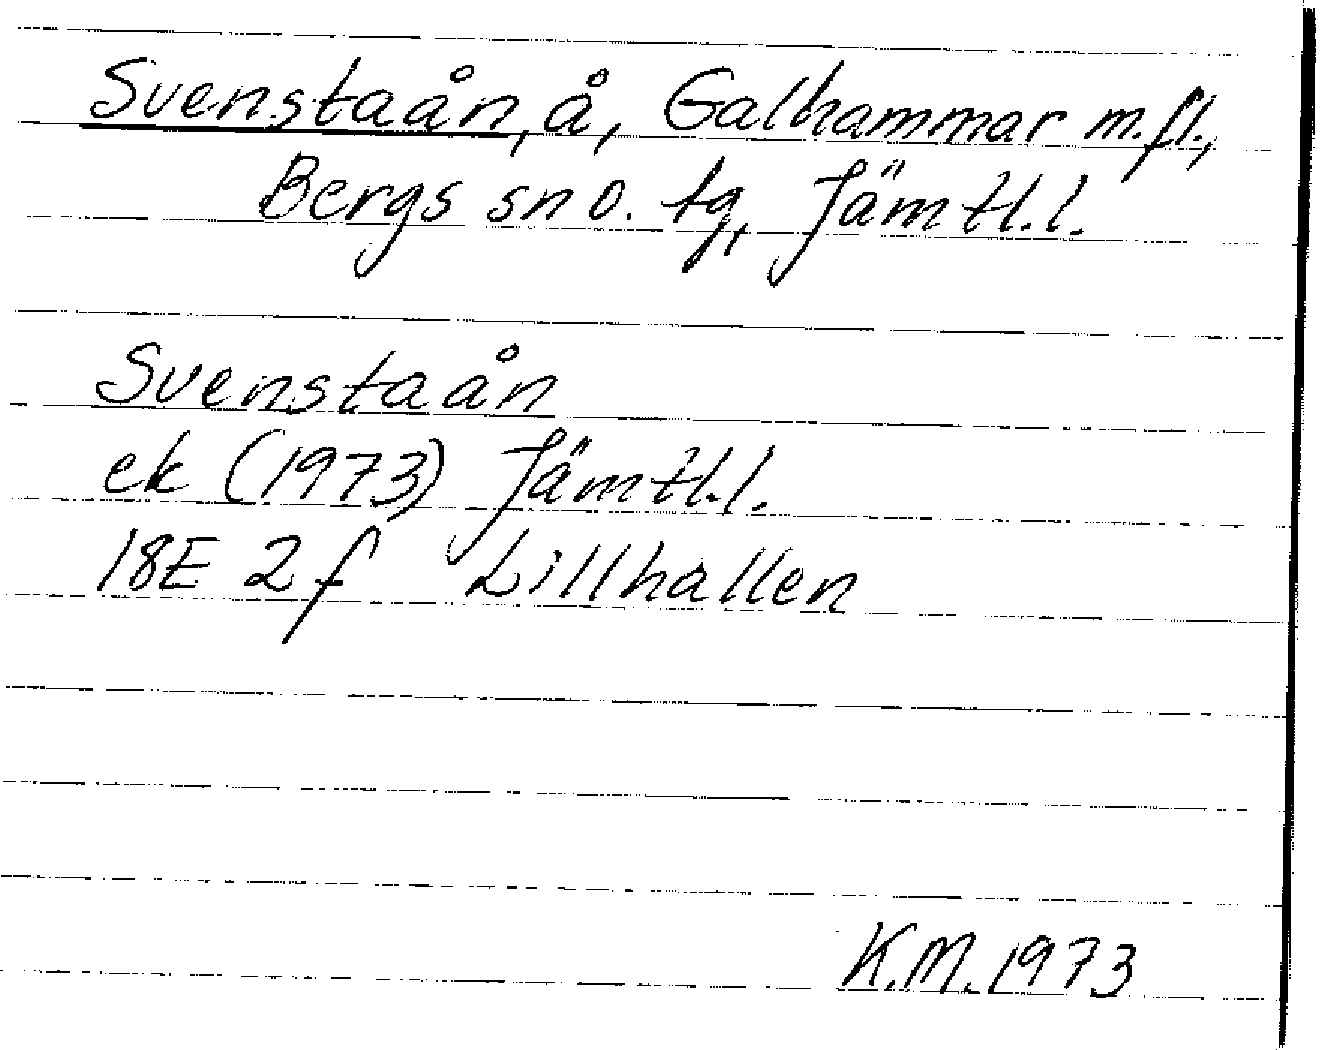 Svenstaån, å, Galhammar m.fl.,
Bergs sn o. tg, Jämtl.l.
Svenstaån
ek (1973) Jämtl.l.
18E 2f Lillhallen
K.M. 1973